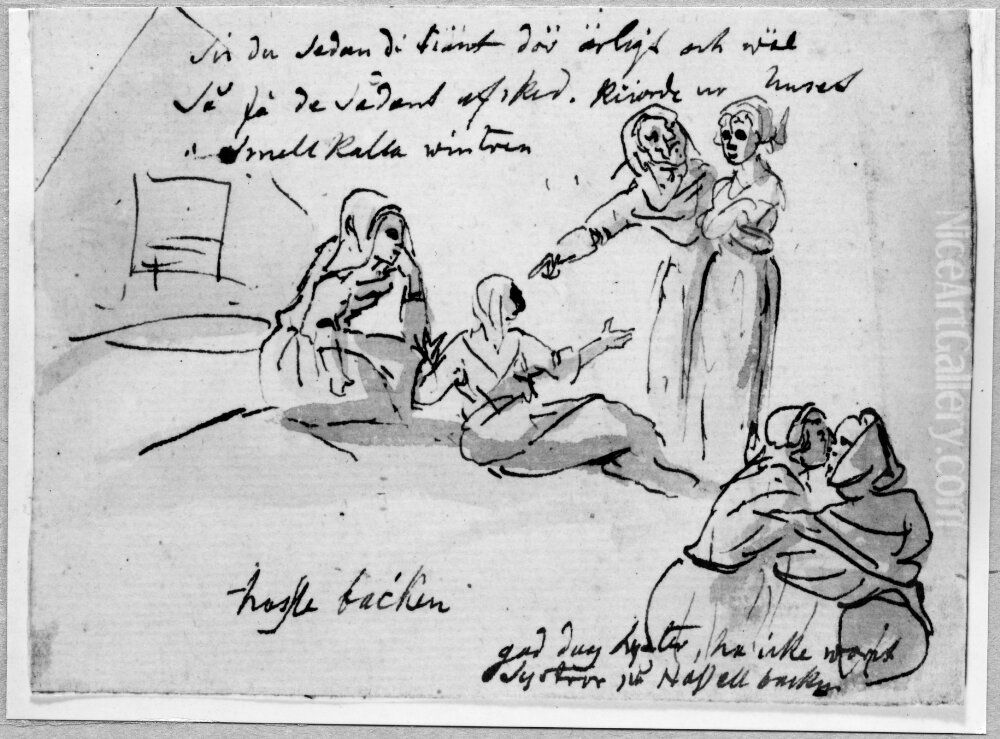 Sir du sedan di tiänt dör ärligt och wäl
Så få de sådant afsked. kiörde ur huset
i smell kalla wintren
hassle backen
god dag syster, ha icke warit
Systrar på Hassell backen
NiceArtGallery.com